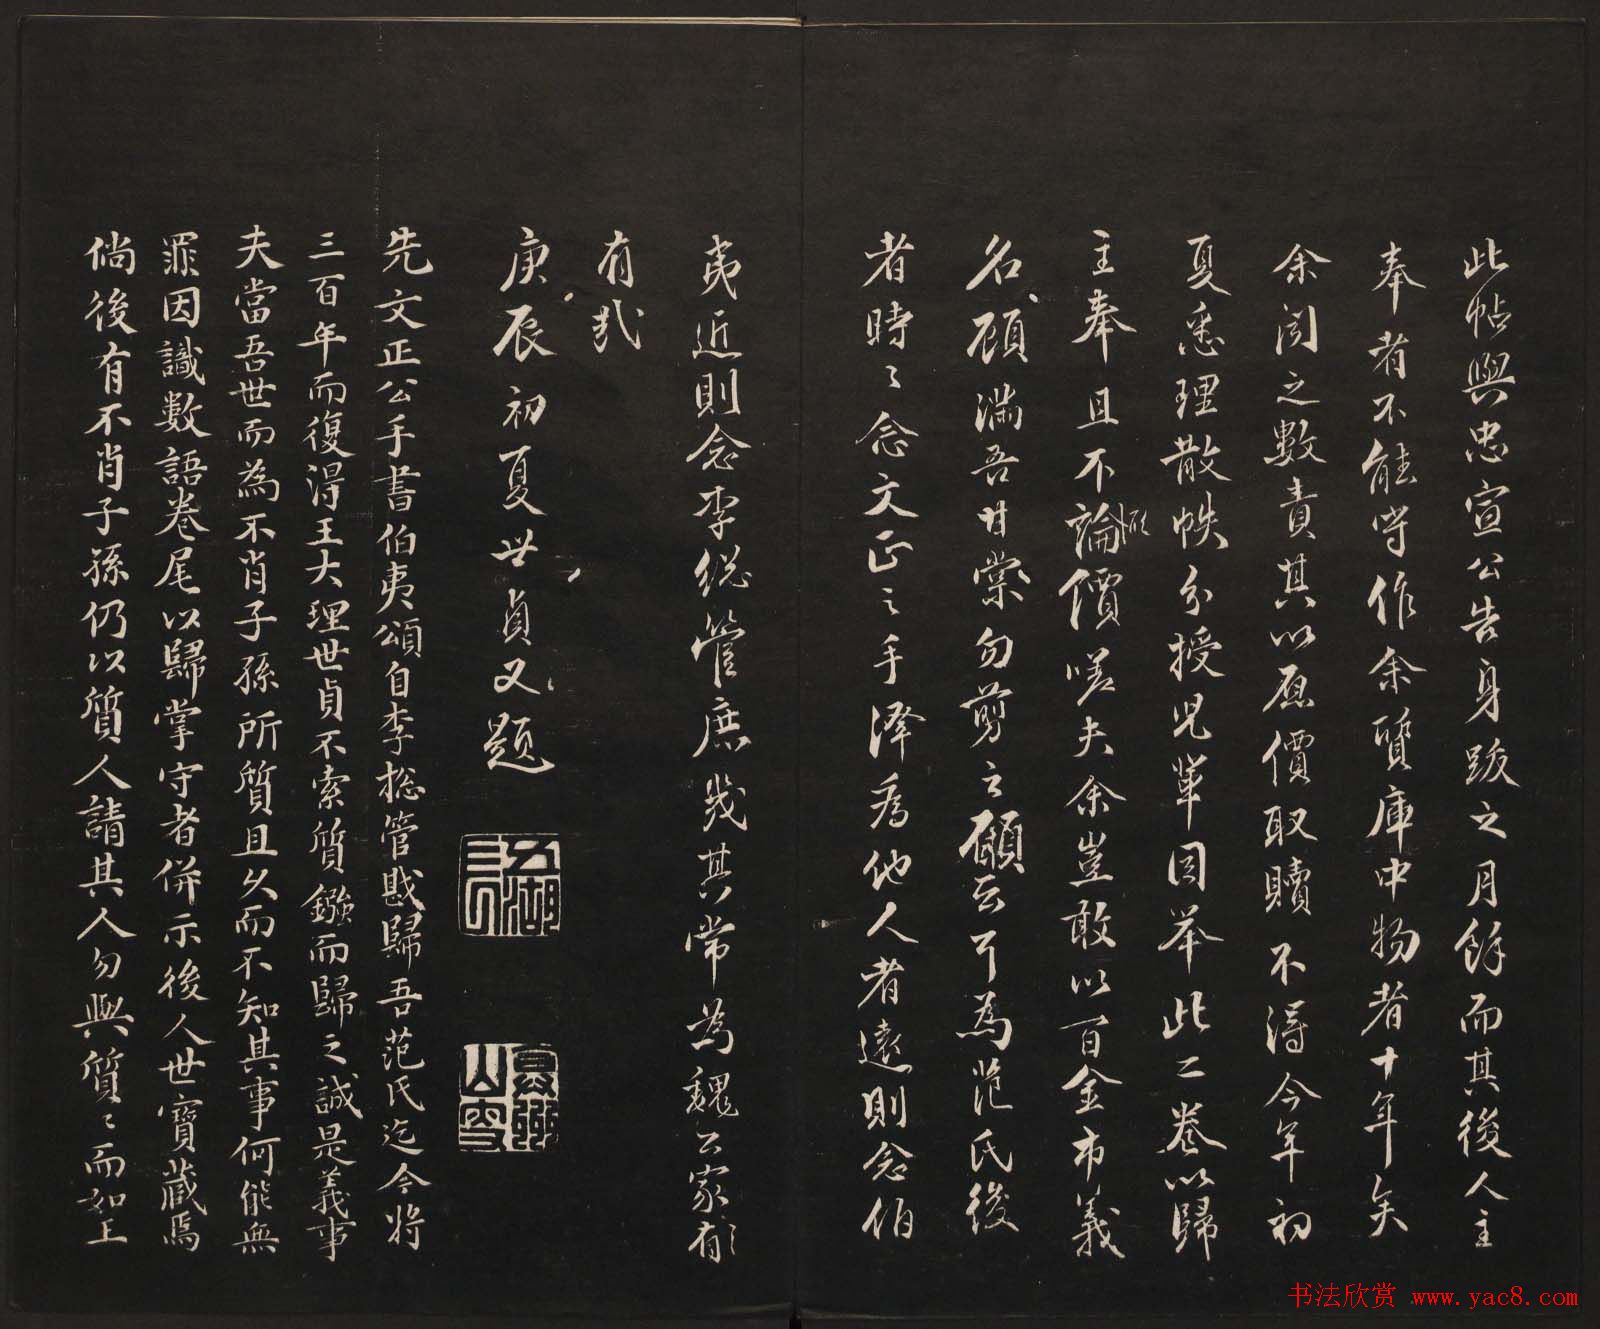 此帖與忠宣公告身跋之月餘而其後人主
奉者不能守作余質庫中物者十年矣
余閔之數責其以原價取贖不得今年初
夏悉理散帙分授兒輩因舉此二卷以歸
主奉且不論價嗟夫余豈敢以百金市義
名顧滿吾甘棠勿剪之願云耳為范氏後
者時〻念文正之手澤為他人者遠則念伯
夷近則念李総管庶幾其常為魏公家有
有哉
庚辰初夏世貞又題
先文正公手書伯夷頌自李總管戡歸吾范氏迄今將
三百年而復得王大理世貞不索質鏹而歸之誠是義事
夫當吾世而為不肖子孫所質且久而不知其事何能無
罪因識數語卷尾以歸掌守者併示後人世寶藏焉
倘後有不肖子孫仍以質人請其人勿與質〻而如上
五湖
書法欣赏 www.yac8.com